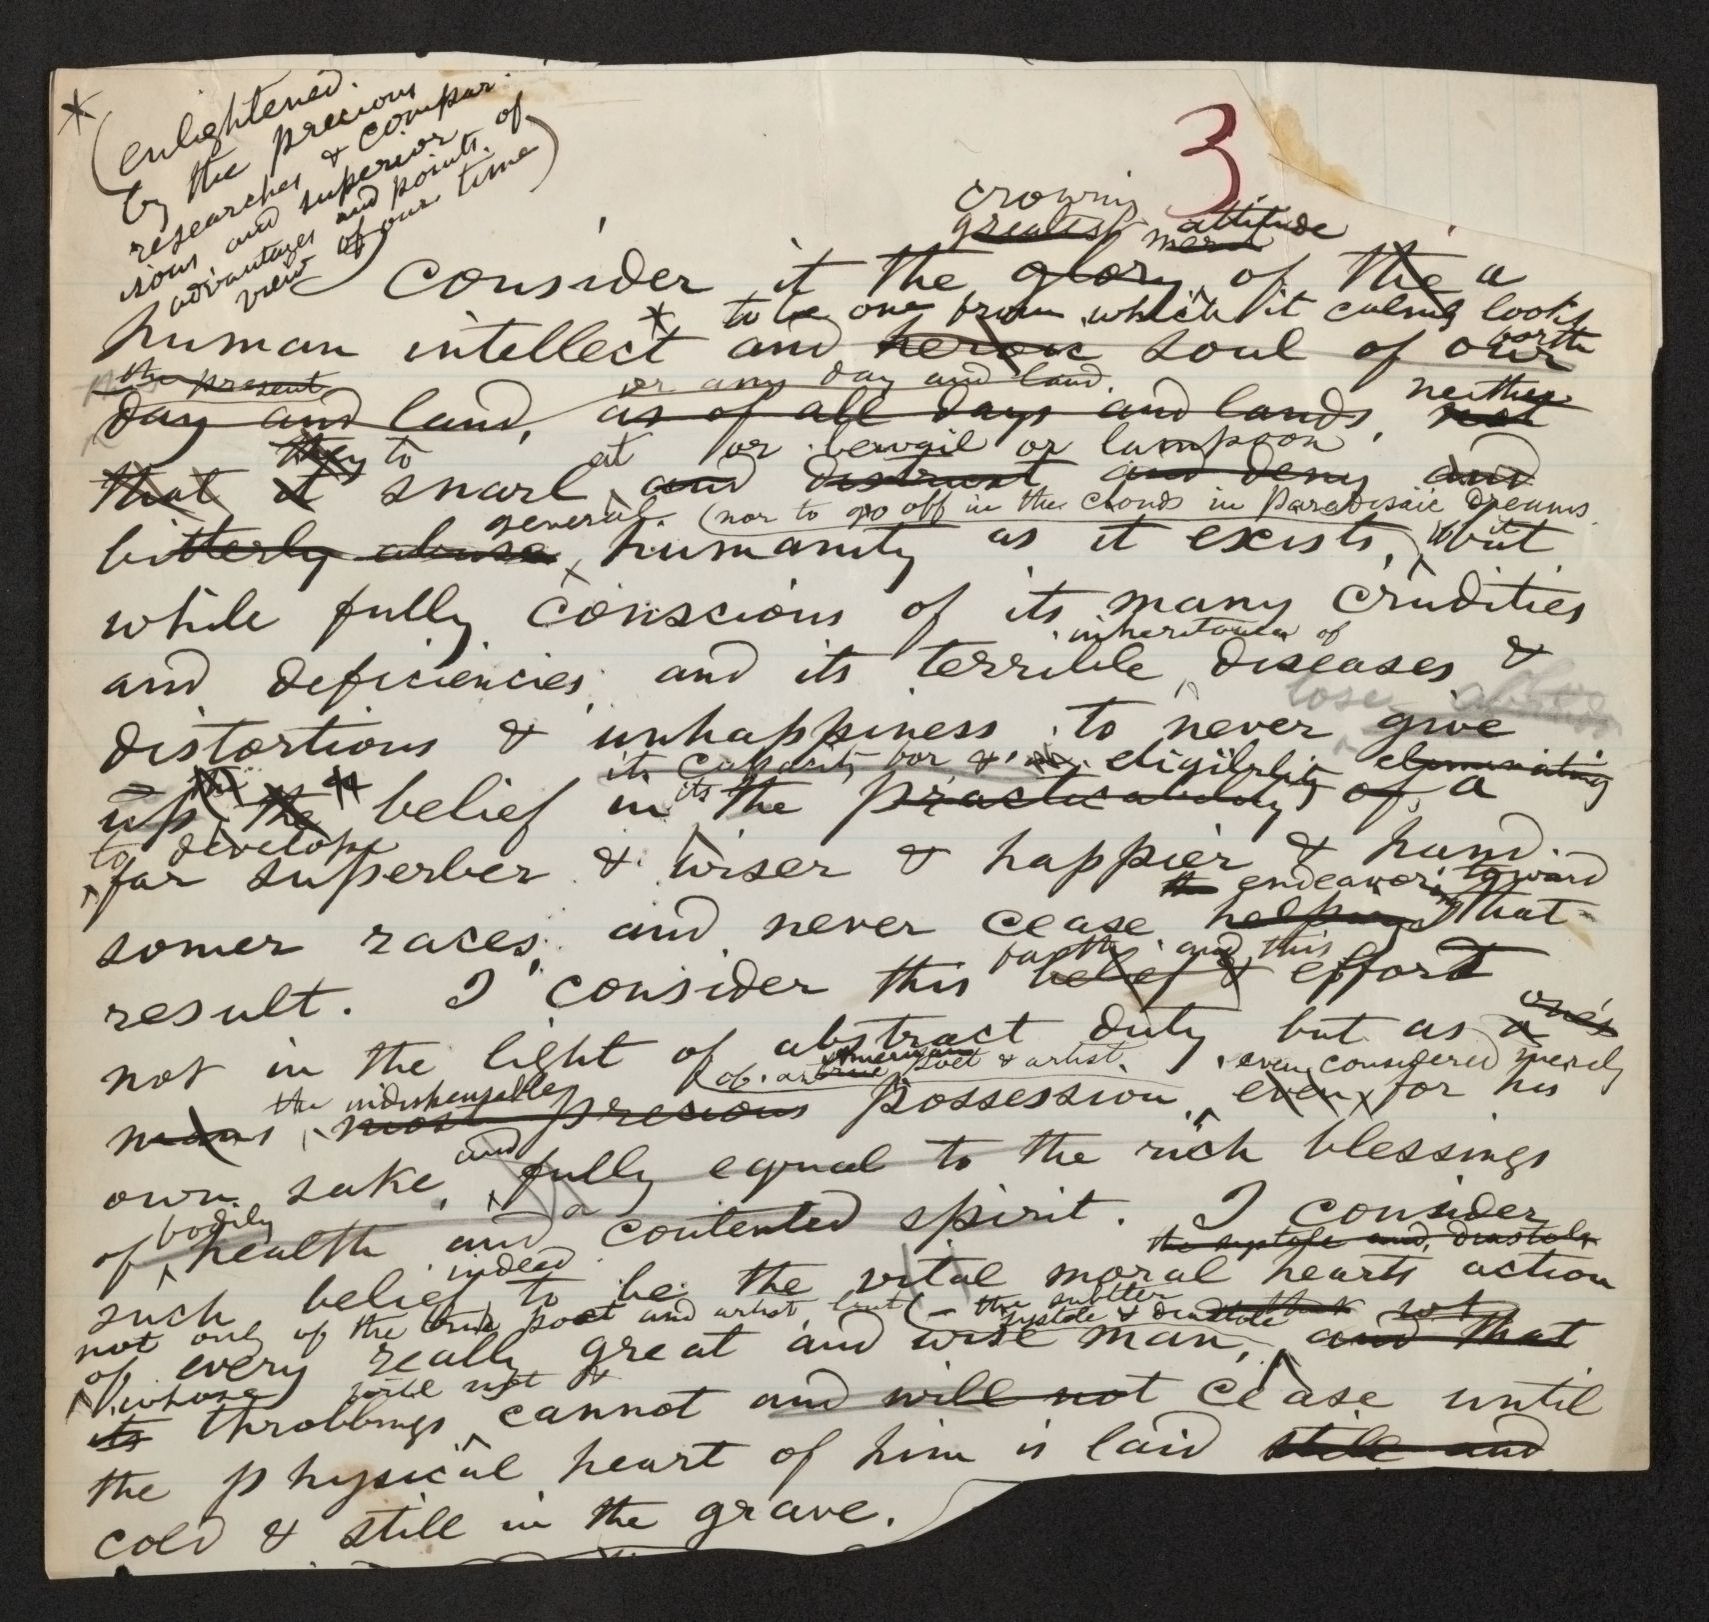 *
(enlightened
by the precious
researches & compar-
isons and superior
advantages and points of
view of our time)
3
crowning
greatest merit attitude
I consider it the glory of the a
to be one from which it calmly looks
human intellect * and heroic soul of our
forth
the present or any day and land.
day and land, as of all days and lands, not
neither
they to at or bewail or lampoon
that it snarl and distrust and deny and
general (nor to go off in the clouds in Paradisaic dreams
bitterly abuse humanity as it exists, but
while fully conscious of its many crudities
inheritance of
and deficiencies and its terrible diseases &
lose
distortions & unhappiness to never give
its capacity for & eligibility eliminating
up the belief in its the practicability of a
to develope
far superber & wiser & happier & hand-
the endeavoring toward
somer races, and never cease helping that
faith and this
result. I consider this belief & effort
one's
not in the light of abstract duty but as a
of a true American poet & artist. even considered merely
the indispensable
mans most precious possession, even, for his
and
own sake, fully equal to the rich blessings
bodily a
of health and contented spirit. I consider
indeed the systole and diastole
such belief to be the vital moral hearts action
not only of the true poet and artist but (– the subtler
systole & diastole
of every really great and wise man, and that
whose will not &
its throbbings cannot and will not cease until
the physical heart of him is laid still and
cold & still in the grave.